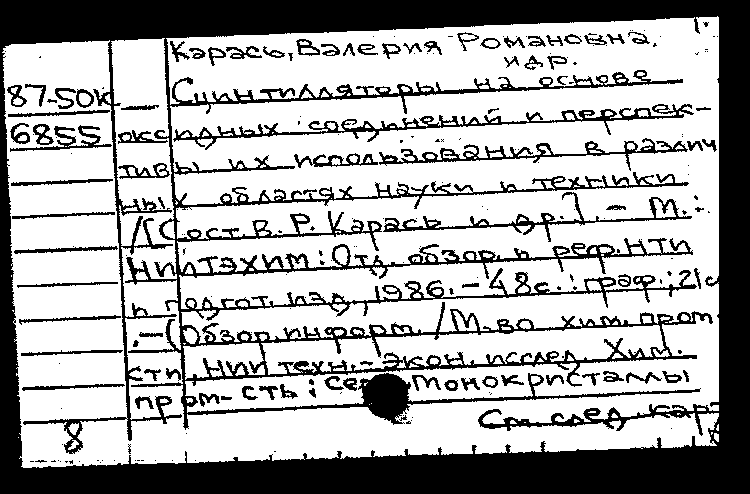 Карась, Валерия Романовна.
и др.
87-50к Сцинтилляторы на основе
6855 оксидных соединений и перспек-
тивы их использования в различ
ных областях науки и техники
/[Сост. В. Р. Карась и др.]. - М.:
НИИТЭХИМ: Отд. обзор. и реф. НТИ
и подгот. изд., 1986. - 48 с.: граф.; 21 с
. - (Обзор. информ. / М-во хим. пром-
сти, НИИ техн.-экон. исслед. Хим.
пром-сть; Монокристаллы
См. след. кар
8